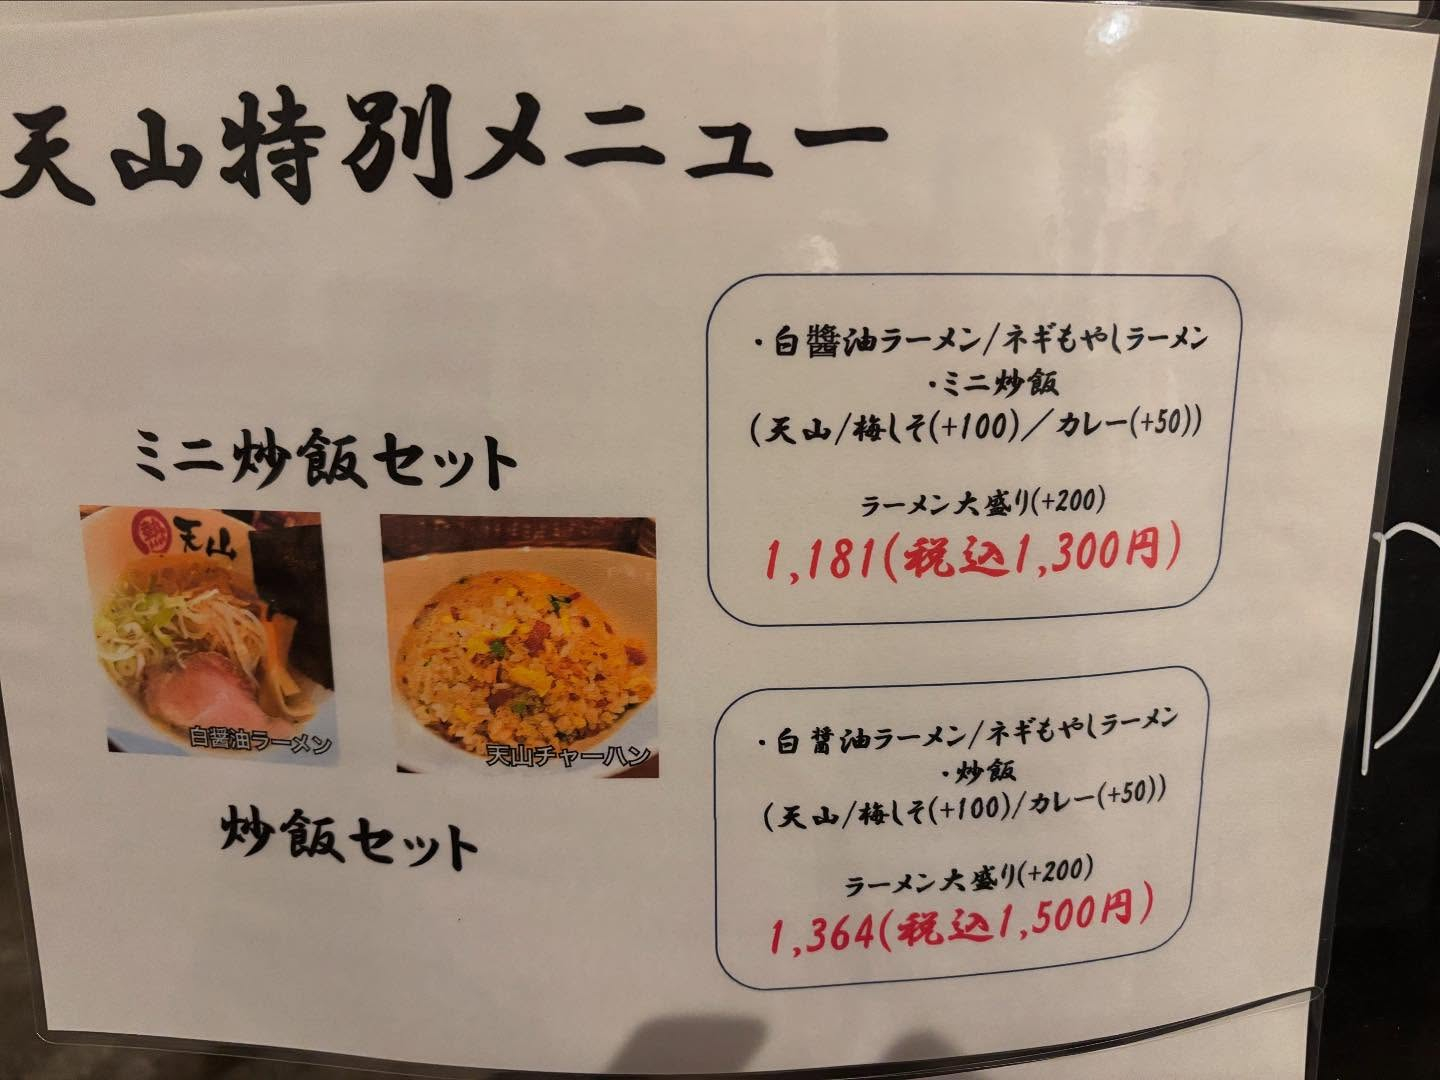 天山特別メニュー
・白醬油ラーメン/ネギもやしラーメン
・ミニ炒飯
(天山/梅しそ(+100)/カレー(+50))
ラーメン大盛り(+200)
1,181(税込1,300円)
ミニ炒飯セット
天山
白醤油ラーメン
天山チャーハン
炒飯セット
・白醤油ラーメン/ネギもやしラーメン
・炒飯
(天山/梅しそ(+100)/カレー(+50))
ラーメン大盛り(+200)
1,364(税込1,500円)